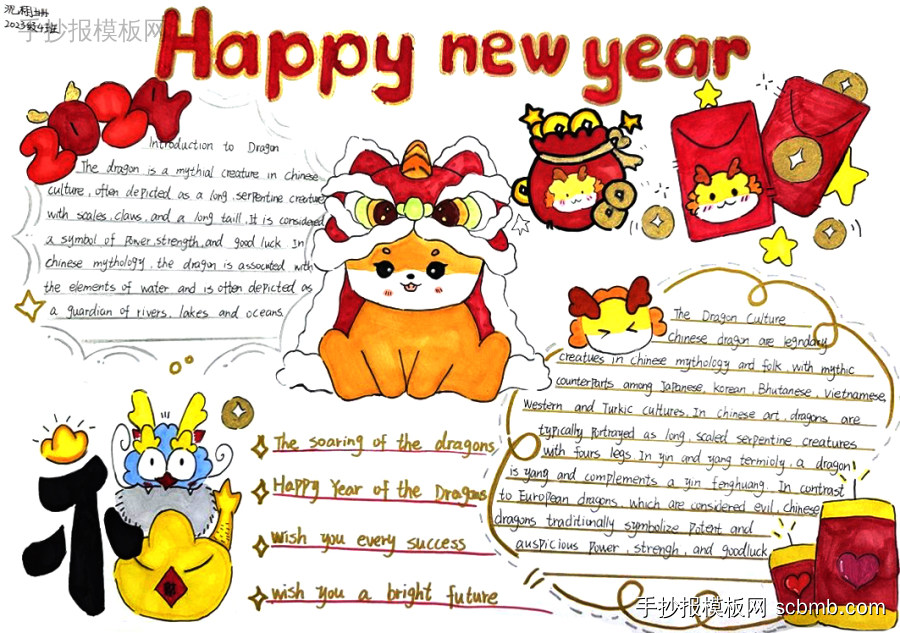 2023级4班
手抄报模板网
Happy new year
2024
Introduction to Dragon
The dragon is a mythial creature in chinese
culture, often depicted as a long, serpentine creature
with scales, claws, and a long taill. It is considered
a symbol of power, strength, and good luck. In
chinese mythology, the dragon is associated with
the elements of water and is often depicted as
a guardian of rivers, lakes and oceans.
The Dragon Culture
Chinese dragon are legndary
creatues in chinese mythology and folk, with mythic
counterparts among Japanese, korean, Bhutanese, vietnamese,
western and Turkic cultures. In chinese art, dragons are
typically portrayed as long, scaled serpentine creatures
with fours legs. In yin and yang termioly, a dragon
is yang and complements a yin fenghuang. In contrast
to European dragons, which are considered evil, chinese
dragons traditionally symbolize potent and
auspicious power, strengh, and goodluck
The soaring of the dragons
Happy Year of the Dragons
wish you every success
wish you a bright future
手抄报模板网 scbmb.com